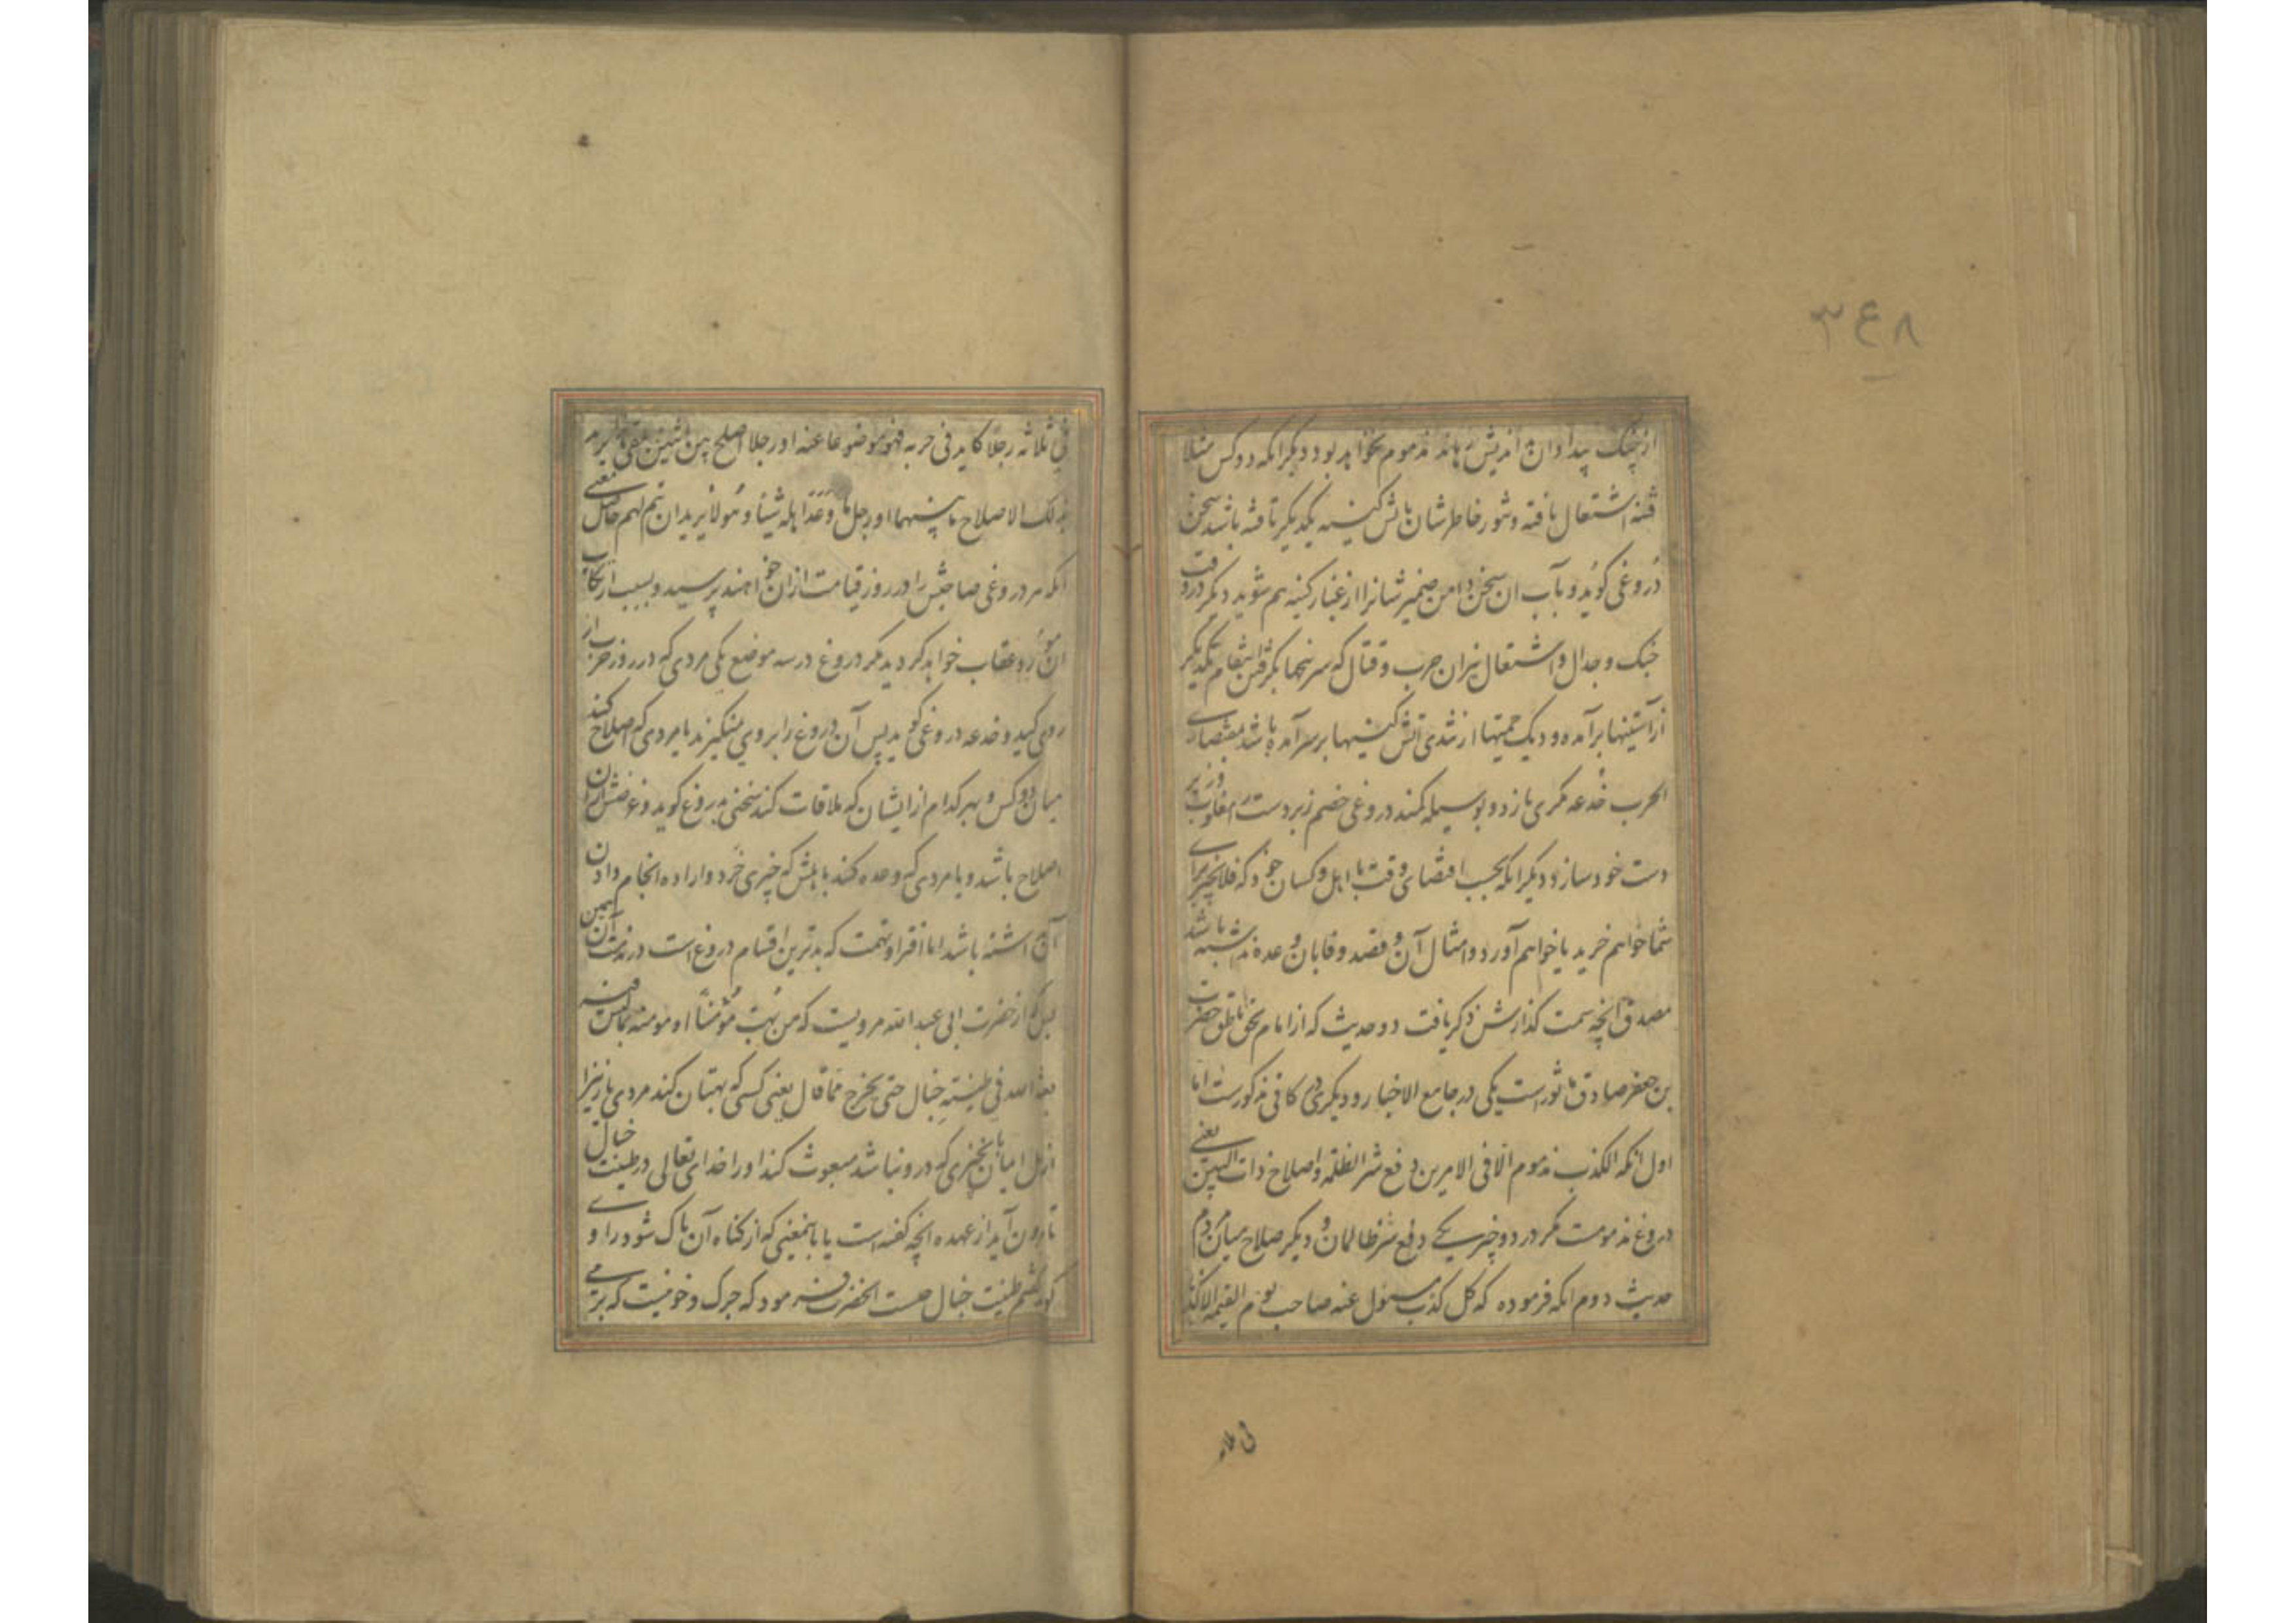 ۳۴۸
از چنک بیداد ان اندیش رهاند مذموم نخواهد بود دیکر انکه دو کس مثلا
فتنه اشتعال یافته و تنور خاطرشان باتش کینه یکدیکر تافته باشد سخن
دروغی کوید و بآب ان سخن دامن ضمیر شانرا از غبار کینه هم شوید دیکر در وقت
جنک و جدال و اشتعال نیران حرب و قتال که سرپنجها بکرفتن انتقام یکدیکر
از آستینها برآمده و دیک حمیتها از تندی آتش کینها برسر آمده باشد بمقتضای
الحرب خدعه مکری بازد و بوسیله کمند دروغی خصم زبردست را مغلوب و زیر
دست خود سازد دیکر انکه بحسب اقتضای وقت با اهل و کسان خود که فلانچیز برای
شما خواهم خرید یا خواهم آورد و امثال آن و قصد وفا بان وعده نداشته باشد
مصدق انچه سمت کذارش ذکر یافت دو حدیث که از امام بحق ناطق حضرت
بن جعفر صادق ماثور است یکی در جامع الاخبار و دیکری در کافی مذکورست اما
اول انکه الکذب مذموم الا فی الامرین دفع شر الظلمة و اصلاح ذات البین یعنی
دروغ مذمومست مکر در دو چیز یکی دفع شر ظالمان و دیکر صلاح میان مردم
حدیث دوم انکه فرموده که کل کذب مسئول عنه صاحبه یوم القیمه الا کذبا
فی ثلاثه
فی ثلاثه رجلا کاید فی حربه فهو موضوعا عنه او رجلا اصلح بین اثنین یلقی هذا بغیر ما
بذلک الاصلاح ما بینهما او رجل وعد اهله شیئا و هو لا یرید ان یتم لهم حاصل معنی
انکه هر دروغی صاحبش را در روز قیامت از ان خواهند پرسید و بسبب ارتکاب
ان مورد عقاب خواهد کردید مکر دروغ در سه موضع یکی مردی که در روز حرب از
روی کید و خدعه دروغی کوید پس آن دروغ را بر وی نمیکیرند یا مردی که اصلاح کند
میان دو کس و بهر کدام از ایشان که ملاقات کند سخنی بدروغ کوید و غرضش از ان
اصلاح باشد و یا مردی که وعده کند باهلش که چیزی خرد و اراده انجام دادن
آن نداشته باشد اما افترا و تهمت که بدترین اقسام دروغ است در مذمت آن همین
بس که از حضرت ابی عبدالله مرویست که من بهت مؤمنا او مومنه بما لیس فیه
بعثه الله فی طینة خبال حتی یخرج مما قال یعنی کسی که بهتان کند مردی یا زنی را
از اهل ایمان بچیزی که در و نباشد مبعوث کند او را خدای تعالی در طینت خبال
تا برون آید از عهده انچه کفته است یا باینمعنی که از کناه آن پاک شود راوی
کوید کفتم طینت خبال چیست انحضرت فرمود که چرک و خونیست که بر می